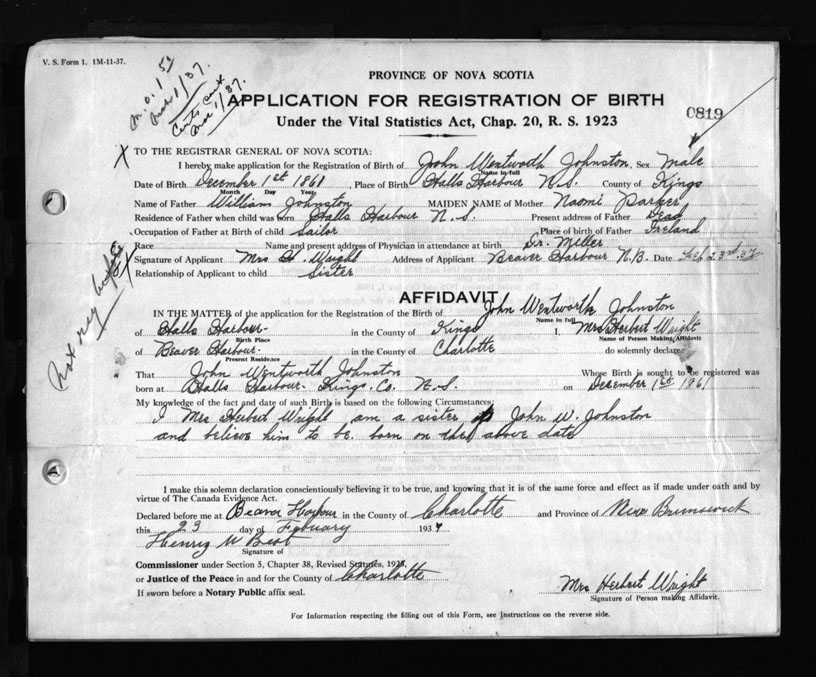 V. S. Form 1. 1M-11-37.
M.O. 1 50
Mar 1/37.
Certs sent
Mar 1/37.
PROVINCE OF NOVA SCOTIA
APPLICATION FOR REGISTRATION OF BIRTH
0819
Under the Vital Statistics Act, Chap. 20, R. S. 1923
X TO THE REGISTRAR GENERAL OF NOVA SCOTIA:
I hereby make application for the Registration of Birth of John Wentworth Johnston, Sex Male
Name in full
Date of Birth December 1st 1861, Place of Birth Halls Harbour N.S. County of Kings
Month Day Year
Name of Father William Johnston MAIDEN NAME of Mother Naomi Parker
Residence of Father when child was born Halls Harbour N.S. Present address of Father Dead
Occupation of Father at Birth of child Sailor Place of birth of Father Ireland
Race Name and present address of Physician in attendance at birth Dr. Miller
X Signature of Applicant Mrs H. Wright Address of Applicant Beaver Harbour N.B. Date Feb 23rd. 37
Relationship of Applicant to child Sister
Not reg before
AFFIDAVIT
IN THE MATTER of the application for the Registration of the Birth of John Wentworth Johnston
Name in full
of Halls Harbour in the County of Kings I, Mrs Herbert Wright
Birth Place Name of Person Making Affidavit
of Beaver Harbour in the County of Charlotte do solemnly declare:
Present Residence
That John Wentworth Johnston Whose Birth is sought to be registered was
born at Halls Harbour. Kings. Co. N.S. on December 1st 1861
My knowledge of the fact and date of such Birth is based on the following Circumstances:
I Mrs Herbert Wright am a sister to John W. Johnston
and believe him to be born on the above date
I make this solemn declaration conscientiously believing it to be true, and knowing that it is of the same force and effect as if made under oath and by
virtue of The Canada Evidence Act.
Declared before me at Beaver Harbour in the County of Charlotte and Province of New Brunswick
this 23 day of February 1937
Henry W Best
Signature of
Commissioner under Section 5, Chapter 38, Revised Statutes, 1923,
or Justice of the Peace in and for the County of Charlotte
Mrs Herbert Wright
If sworn before a Notary Public affix seal.
Signature of Person making Affidavit.
For Information respecting the filling out of this Form, see Instructions on the reverse side.